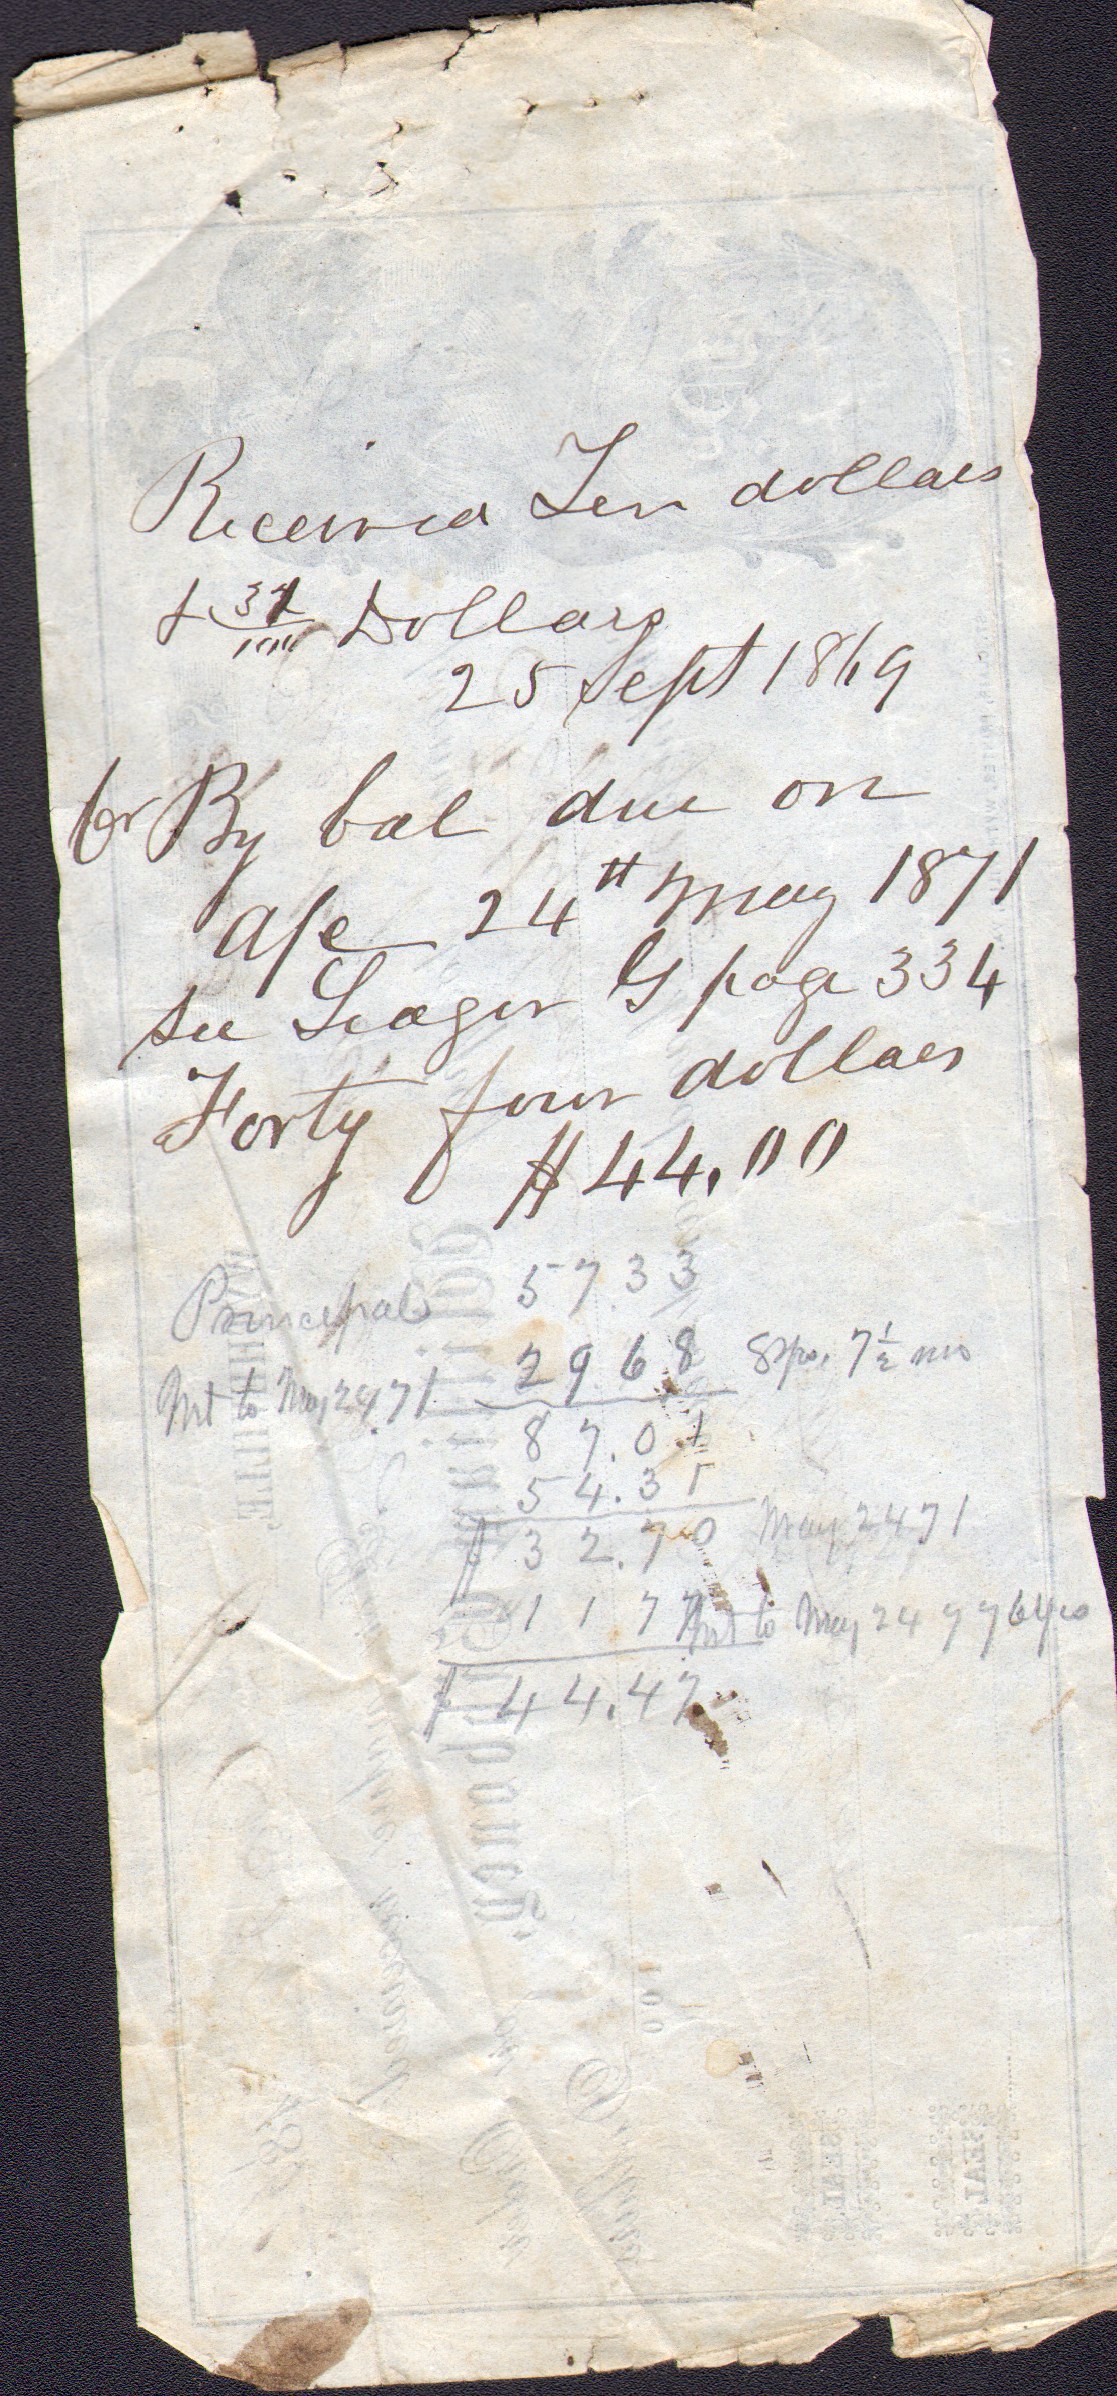 Received Ten dollars
& 31/100 Dollars
25 Sept 1869
Cr By bal due on
a/c 24th May 1871
see Leager G page 334
Forty four dollars
$44.00
Principal 57.33
Int to May 24, 71 29 68 8 yrs. 7½ mo
87.01
54.31
$ 32.70 May 24 71
11 77 Int to May 24 77 6 y o
$ 44.47